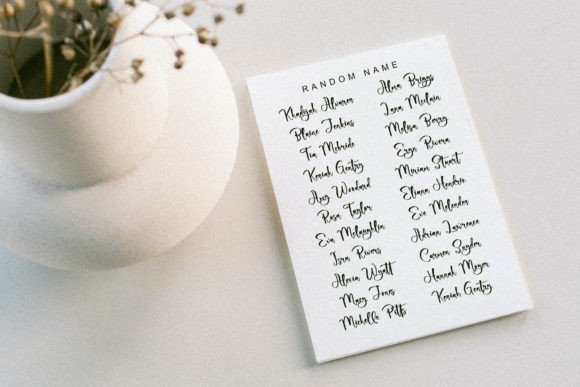 RANDOM NAME
Khadijah Alvarez
Blaine Jenkins
Tia Mcbride
Keniah Gentry
Amy Woodard
Rosa Taylor
Eva Mclaughlin
Isra Rivers
Alexia Wyatt
Macy Jones
Michelle Pitts
Alma Briggs
Lana Mclain
Melisa Berry
Eryn Rivera
Miriam Stuart
Eliana Hendrix
Eve Melendez
Adrian Lawrence
Carmen Snyder
Hannah Meyer
Keniah Gentry